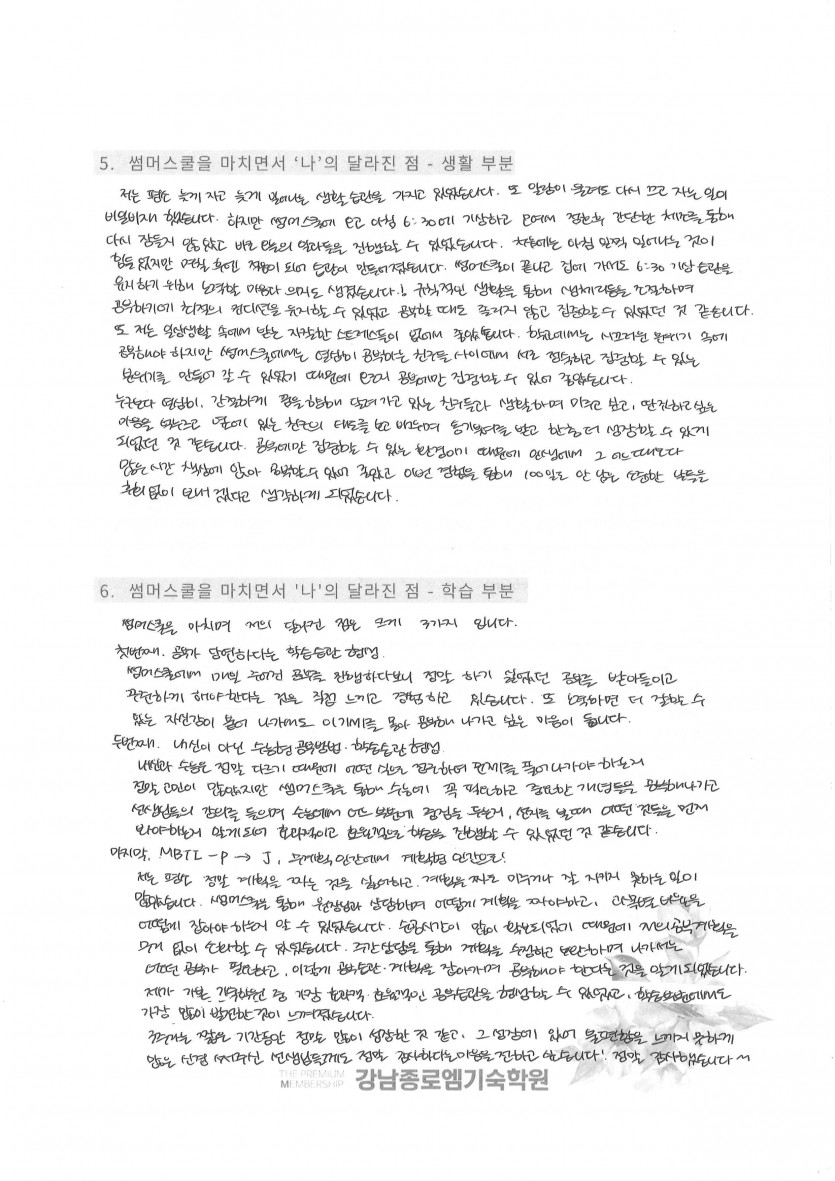 5. 썸머스쿨을 마치면서 ‘나’의 달라진 점 - 생활 부분
저는 평소 늦게 자고 늦게 일어나는 생활 습관을 가지고 있었습니다. 또 알람이 울려도 다시 끄고 자는 일이
비일비재 했습니다. 하지만 썸머스쿨에 오고 아침 6:30에 기상하고 간단한 체조를 통해
다시 잠들지 않고 바로 오늘의 일과들을 진행할 수 있었습니다. 처음에는 아침 일찍 일어나는 것이
힘들었지만 며칠 후엔 적응이 되어 습관이 만들어졌습니다. 썸머스쿨이 끝나고 집에 가서도 6:30 기상 습관을
유지하기 위해 노력할 마음과 의지도 생겼습니다! 규칙적인 생활을 통해 생체리듬을 조절하며
공부하기에 최적의 컨디션을 유지할 수 있었고 공부할 때도 졸리지 않고 집중할 수 있었던 것 같습니다.
또 저는 일상생활 속에서 받는 자잘한 스트레스들이 없어서 좋았습니다. 학교에서는 시끄러운 분위기 속에
공부해야 하지만 썸머스쿨에서는 열심히 공부하는 친구들 사이에서 서로 정숙하고 집중할 수 있는
분위기를 만들어 갈 수 있었기 때문에 오로지 공부에만 집중할 수 있어 좋았습니다.
누구보다 열심히, 간절하게 꿈을 향해 달려가고 있는 친구들과 생활하며 미루고 싶고, 딴짓하고 싶은
마음을 옆에 있는 친구의 태도를 보고 배우며 동기부여를 받고 한층 더 성장할 수 있게
되었던 것 같습니다. 공부에만 집중할 수 있는 환경이기 때문에 인생에서 그 어느때보다
많은 시간 책상에 앉아 공부할 수 있어 좋았고 이번 경험을 통해 100일도 안 남은 소중한 날들을
후회 없이 보내야겠다고 생각하게 되었습니다.
6. 썸머스쿨을 마치면서 '나'의 달라진 점 - 학습 부분
썸머스쿨을 마치며 저의 달라진 점은 크게 3가지 입니다.
첫번째. 공부가 당연하다는 학습습관 형성
썸머스쿨에서 매일 주어진 공부를 진행하다보니 정말 하기 싫었던 공부를 받아들이고
꾸준하게 해야한다는 것을 직접 느끼고 경험하고 있습니다. 또 노력하면 더 잘할 수
있는 자신감이 붙어 나가서도 이 기세를 몰아 공부해 나가고 싶은 마음이 듭니다.
두번째. 내신이 아닌 수능형 공부방법·학습습관 형성
내신과 수능은 정말 다르기 때문에 어떤 식으로 접근하여 문제를 풀어나가야 하는지
정말 고민이 많았었지만 썸머스쿨을 통해 수능에 꼭 필요하고 중요한 개념들을 공부해나가고
선생님들의 강의를 들으며 수능에서 어느 부분에 중점을 두는지, 선지를 볼때 어떤 것들을 먼저
봐야하는지 알게 되어 효과적이고 효율적으로 학습을 진행할 수 있었던 것 같습니다.
마지막, MBTI - P → J, 무계획 인간에서 계획형 인간으로!
저는 평소 정말 계획을 짜는 것을 싫어하고, 계획을 짜도 미루거나 잘 지키지 못하는 일이
많았습니다. 썸머스쿨을 통해 원장님과 상담하며 어떻게 계획을 짜야하고, 과목별 비중을
어떻게 잡아야 하는지 알 수 있었습니다. 순공시간이 많이 확보되었기 때문에 저의 공부계획을
무리 없이 소화할 수 있었습니다. 주간상담을 통해 계획을 수정하고 보완하며 나가서는
어떤 공부가 필요하고, 어떻게 공부습관·계획을 잡아가며 공부해야 한다는 것을 알게 되었습니다.
제가 가본 기숙학원 중 가장 효과적·효율적인 공부습관을 형성할 수 있었고, 학습부분에서도
가장 많이 발전한 것이 느껴졌습니다.
짧은 기간동안 정말 많이 성장한 것 같고, 그 성장에 있어 불편함을 느끼지 못하게
많은 신경 써주신 선생님들께도 정말 감사하다는 마음을 전하고 싶습니다! 정말 감사했습니다~
THE PREMIUM
MEMBERSHIP 강남종로엠기숙학원